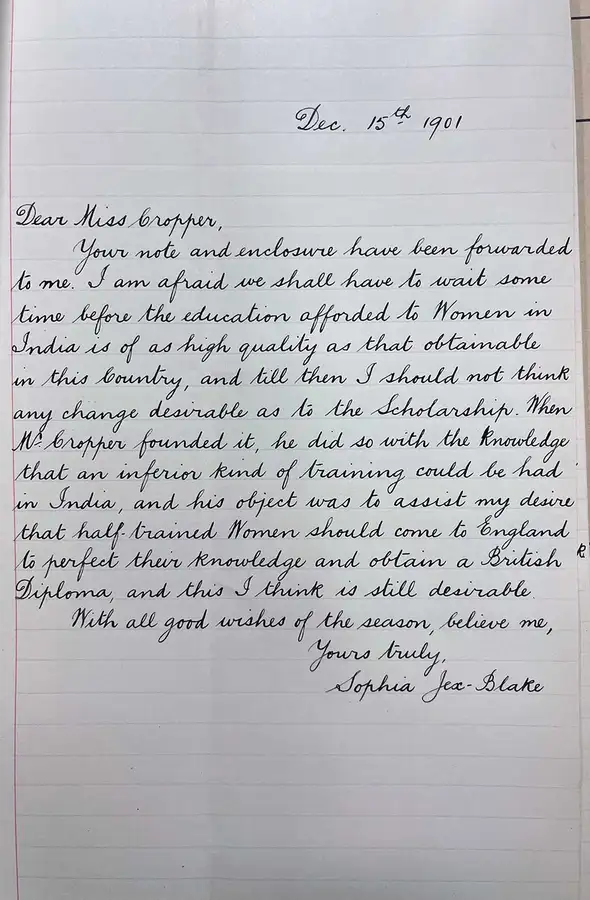 Dec. 15th 1901
Dear Miss Cropper,
Your note and enclosure have been forwarded
to me. I am afraid we shall have to wait some
time before the education afforded to Women in
India is of as high quality as that obtainable
in this Country, and till then I should not think
any change desirable as to the Scholarship. When
Mr Cropper founded it, he did so with the Knowledge
that an inferior kind of training could be had
in India, and his object was to assist my desire
that half-trained Women should come to England
to perfect their knowledge and obtain a British
Diploma, and this I think is still desirable.
With all good wishes of the season, believe me,
Yours truly,
Sophia Jex-Blake